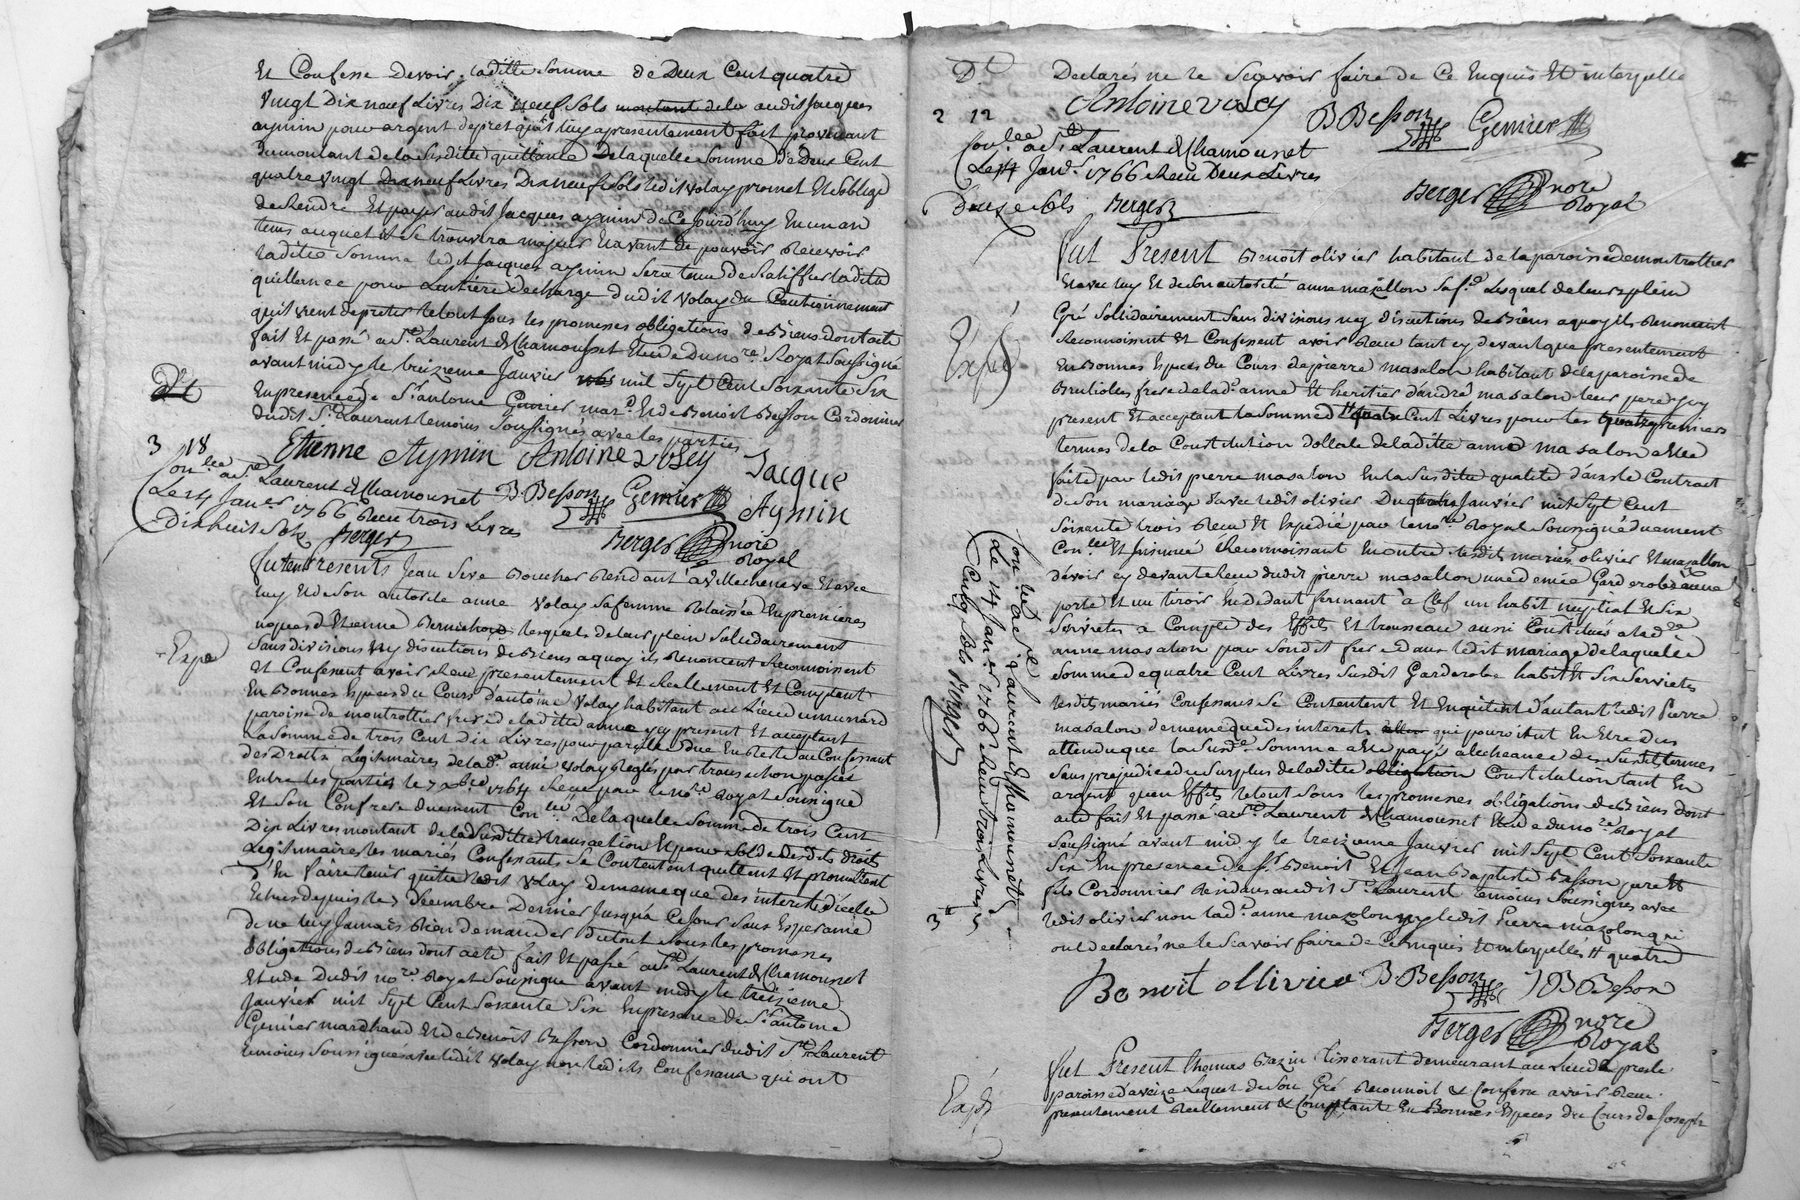 Et Confesse Devoir laditte somme de Deux Cent quatre
vingt Dix neuf Livres Dix neuf sols audit Jacques
aymin pour argent de pret qu'il luy a presentement fait provenant
du montant de la susditte quittance De laquelle somme de Deux Cent
quatre vingt Dix neuf Livres Dix neuf sols ledit volay promet Et oblige
de Rendre Et payer audit Jacques aymin de Ce jourd'huy En un an
tems auquel il se trouvera majeur Et avant de pouvoir Recevoir
laditte somme ledit Jacques aymin sera tenu de Ratiffier laditte
quittance pour L'entiere decharge dudit volay du Cautionnement
qu'il vient de preter le tout sous les promesses obligations de Biens dont acte
fait Et passé a St Laurent de Chamousset Etude du nore Royal Soussigné
avant midy le treizieme Janvier mil Sept Cent Soixante Six
En presence de Sr antoine Gemier mard Et de Benoit Besson Cordonnier
dudit St Laurent temoins soussignés avec les parties
Dt
3 18
Etienne Aymin Antoine Voley Jacque
Aymin
Conlee a St Laurent de Chamousset B. Besson Gemier
Le 14 Janer 1766 Recu trois Livres
Dix huit sols Berger
Berger nore
Royal
Furent Presents Jean Sive Boucher Residant a villecheneve Et avec
luy Et de Son autorité anne volay sa femme Relaissée En premieres
nopces d'Etienne lesquels de leur plein solidairement
Expé
Sans divisions ny discutions de Biens a quoy ils Renoncent Reconnoissent
Et Confessent avoir Recu presentement Et Reellement Et Comptant
En Bonnes Especes du Cours d'antoine Volay habitant au Lieu du
paroisse de montrottier frere de laditte anne icy present Et acceptant
La Somme de trois Cent Dix Livres pour pareille Due En Reste au Confessant
des Droits Legitimaires de lad. anne volay Reglés par transaction passée
Entre les parties le 7 xbre 1764 Recue par le nore Royal Soussigné
Et Son Confrere duement Conlee De laquelle Somme de trois Cent
Dix Livres montant de la Susditte transaction Et pour Solde Desdits droits
Legitimaires les mariés Confessants Se Contentent quittent Et promettent
En faire tenir quitte ledit volay De meme que des interets d'icelle
Echus depuis le 7 Decembre Dernier Jusqu'a Ce jour Sans Esperance
de ne luy Jamais Rien demander Du tout Sous les promesses
obligations de Biens dont acte fait Et passé a St Laurent de Chamousset
Etude Dudit nore Royal Soussigné avant midy le treizieme
Janvier mil Sept Cent Soixante Six En presence de Sr antoine
Gemier marchand Et de Benoit Besson Cordonnier dudit St Laurent
temoins Soussignés avec ledit volay non ledits Confessant qui ont
Dt
Declarés ne le Scavoir faire de Ce Enquis Et interpellé
Antoine Voley B Besson Gemier
2 12
Conlee a St Laurent de Chamousset
Le 14 Janer 1766 Recu Deux Livres
Douze sols Berger
Berger nore
Royal
Fut Present Benoit olivier habitant de la paroisse de montrottier
Et avec luy Et de Son autorité anne mazallon Sa fe Lesquel de leur plein
Gré Sollidairement Sans divisions ny discutions de Biens a quoy ils Renoncent
Expé
Reconnoissent Et Confessent avoir Recu tant cy devant que presentement
En Bonnes Especes du Cours de pierre masalon habitant de la paroisse de
Brulioles frere de lad. anne Et heritier d'andré masalon leur pere icy
present Et acceptant la Somme de quatre Cent Livres pour les quatre premiers
termes de la Constitution dottale de laditte anne masalon a Elle
faite par ledit pierre masalon En la Susditte qualité dans le Contract
de Son mariage avec ledit olivier Du Janvier mil Sept Cent
Soixante trois Recu Et Expedié par le nore Royal Soussigné duement
Conlee Et insinué Reconnoissant En outre lesdits mariés olivier Et mazallon
d'avoir cy devant Recu dudit pierre masallon une demie Garderobe a une
porte Et un tiroir En dedant fermant a Clef un habit nuptial Et Six
Servietes a Compte des Effets Et trousseau aussi Constitués a ladte
anne masalon par Sondit frere dans ledit mariage de laquelle
Somme de quatre Cent Livres Susdit Garderobe habit Et Six Serviettes
lesdits mariés Confessans Se Contentent Et En quittent d'autant ledit Pierre
masalon de meme que des interets qui pourroit En Etre dus
attendu que la Susde Somme a Ete payé a l'echeance des Susdits termes
Sans prejudice du Surplus de laditte obligation Constitution tant En
argent qu'en Effets le tout Sous les promesses obligations de Biens dont
acte fait Et passé a St Laurent de Chamousset Etude du nore Royal
Soussigné avant midy le treizieme Janvier mil Sept Cent Soixante
Six En presence de Sr Benoit Et Jean Baptiste Besson pere Et
fils Cordonnier Residants audit St Laurent temoins Soussignés avec
ledit olivier non lad. anne mazolon ny ledit Pierre mazolon qui
ont declarés ne le Scavoir faire de Ce Enquis Et interpellés quatre
Conlee a St Laurent de Chamousset
Le 14 Janer 1766 Recu trois Livres
Cinq Sols Berger
3 5
Benoit ollivier B. Besson J B Besson
Berger nore
Royal
Fut Present thomas Bazin tisserant demeurant au Lieu de presle
Expé
paroisse d'aveize Lequel de Son Gré Reconnoit & Confesse avoir Recu
presentement Reellement & Comptant En Bonnes Especes du Cours de Joseph